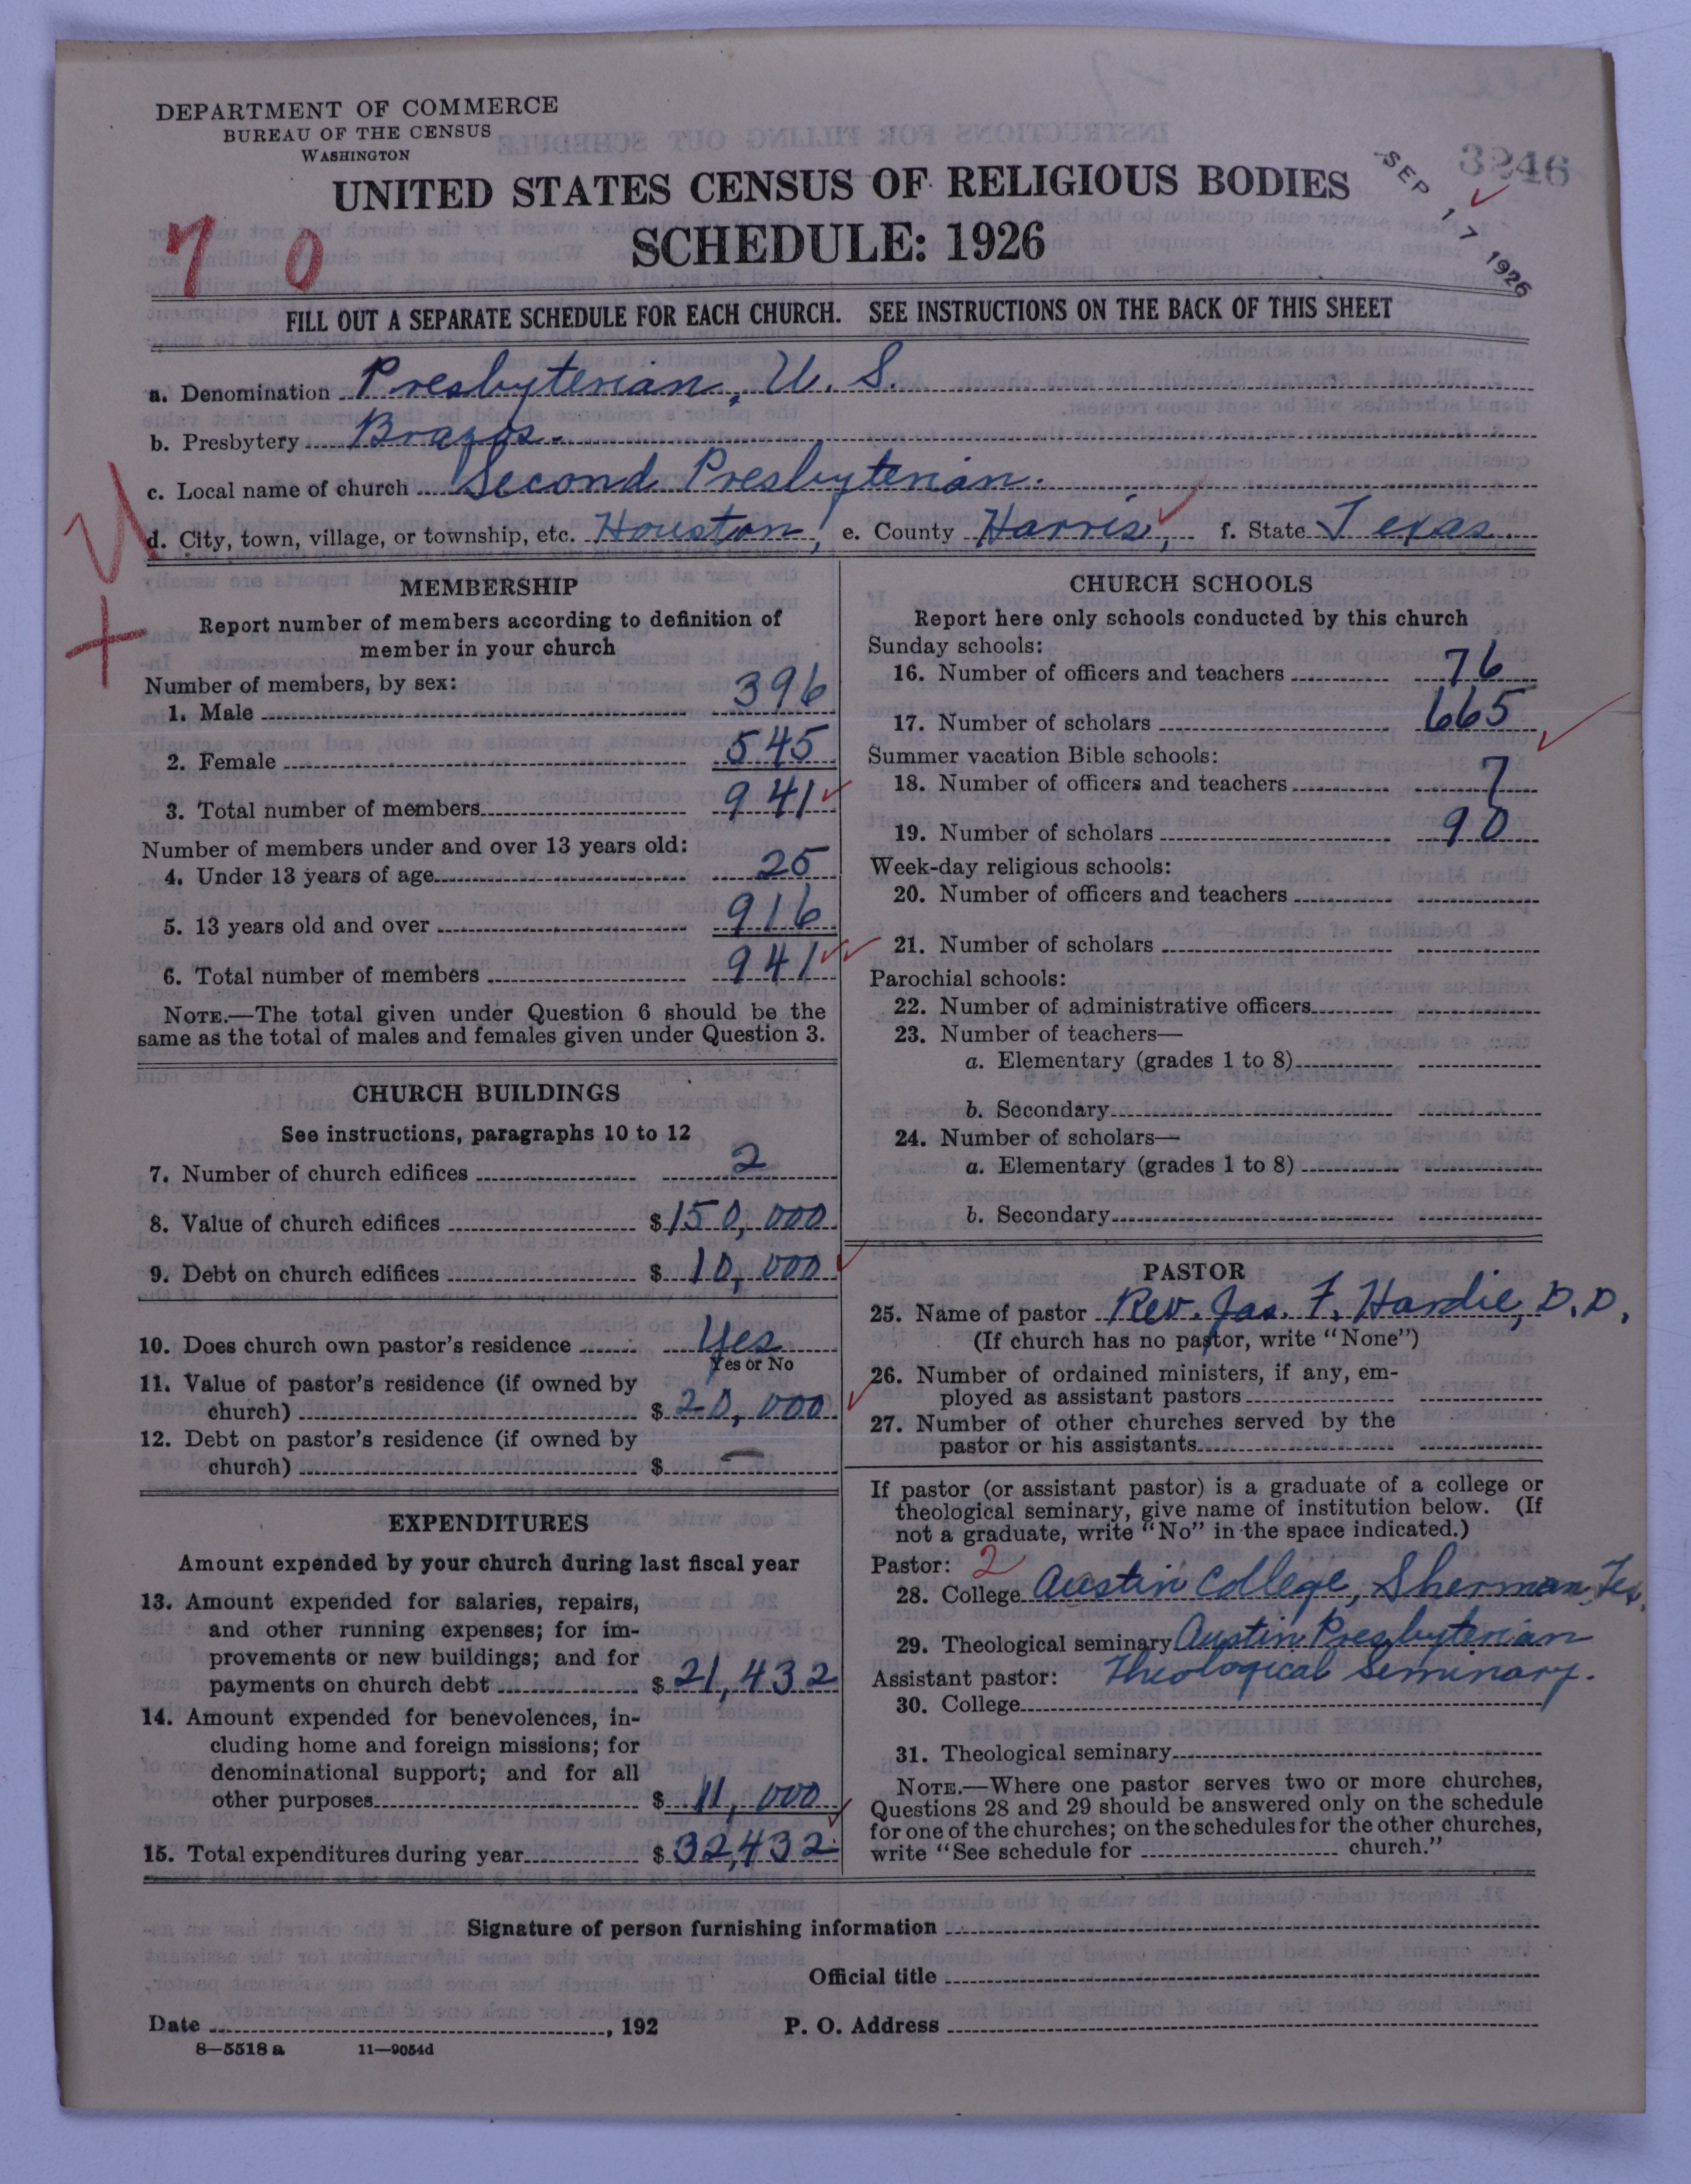 DEPARTMENT OF COMMERCE
BUREAU OF THE CENSUS
WASHINGTON
3246
SEP 17 1926
UNITED STATES CENSUS OF RELIGIOUS BODIES
SCHEDULE: 1926
7 0
FILL OUT A SEPARATE SCHEDULE FOR EACH CHURCH. SEE INSTRUCTIONS ON THE BACK OF THIS SHEET
a. Denomination Presbyterian, U. S.
b. Presbytery Brazos.
c. Local name of church Second Presbyterian.
d. City, town, village, or township, etc. Houston, e. County Harris, f. State Texas.
U
+
MEMBERSHIP
Report number of members according to definition of
member in your church
Number of members, by sex:
1. Male 396
2. Female 545
3. Total number of members 941
Number of members under and over 13 years old:
4. Under 13 years of age 25
5. 13 years old and over 916
6. Total number of members 941
NOTE.—The total given under Question 6 should be the
same as the total of males and females given under Question 3.
CHURCH BUILDINGS
See instructions, paragraphs 10 to 12
7. Number of church edifices 2
8. Value of church edifices $150,000
9. Debt on church edifices $10,000
10. Does church own pastor's residence Yes
Yes or No
11. Value of pastor's residence (if owned by
church) $20,000
12. Debt on pastor's residence (if owned by
church) $ —
EXPENDITURES
Amount expended by your church during last fiscal year
13. Amount expended for salaries, repairs,
and other running expenses; for im-
provements or new buildings; and for
payments on church debt $21,432
14. Amount expended for benevolences, in-
cluding home and foreign missions; for
denominational support; and for all
other purposes $11,000
15. Total expenditures during year $32,432
CHURCH SCHOOLS
Report here only schools conducted by this church
Sunday schools:
16. Number of officers and teachers 76
17. Number of scholars 665
Summer vacation Bible schools:
18. Number of officers and teachers 7
19. Number of scholars 90
Week-day religious schools:
20. Number of officers and teachers
21. Number of scholars
Parochial schools:
22. Number of administrative officers
23. Number of teachers—
a. Elementary (grades 1 to 8)
b. Secondary
24. Number of scholars—
a. Elementary (grades 1 to 8)
b. Secondary
PASTOR
25. Name of pastor Rev. Jas. F. Hardie, D.D.
(If church has no pastor, write "None")
26. Number of ordained ministers, if any, em-
ployed as assistant pastors
27. Number of other churches served by the
pastor or his assistants
If pastor (or assistant pastor) is a graduate of a college or
theological seminary, give name of institution below. (If
not a graduate, write "No" in the space indicated.)
Pastor: 2
28. College Austin College, Sherman, Tex.
29. Theological seminary Austin Presbyterian
Assistant pastor: Theological Seminary.
30. College
31. Theological seminary
NOTE.—Where one pastor serves two or more churches,
Questions 28 and 29 should be answered only on the schedule
for one of the churches; on the schedules for the other churches,
write "See schedule for church."
Signature of person furnishing information
Official title
Date , 192
P. O. Address
8—5518 a 11—9054d